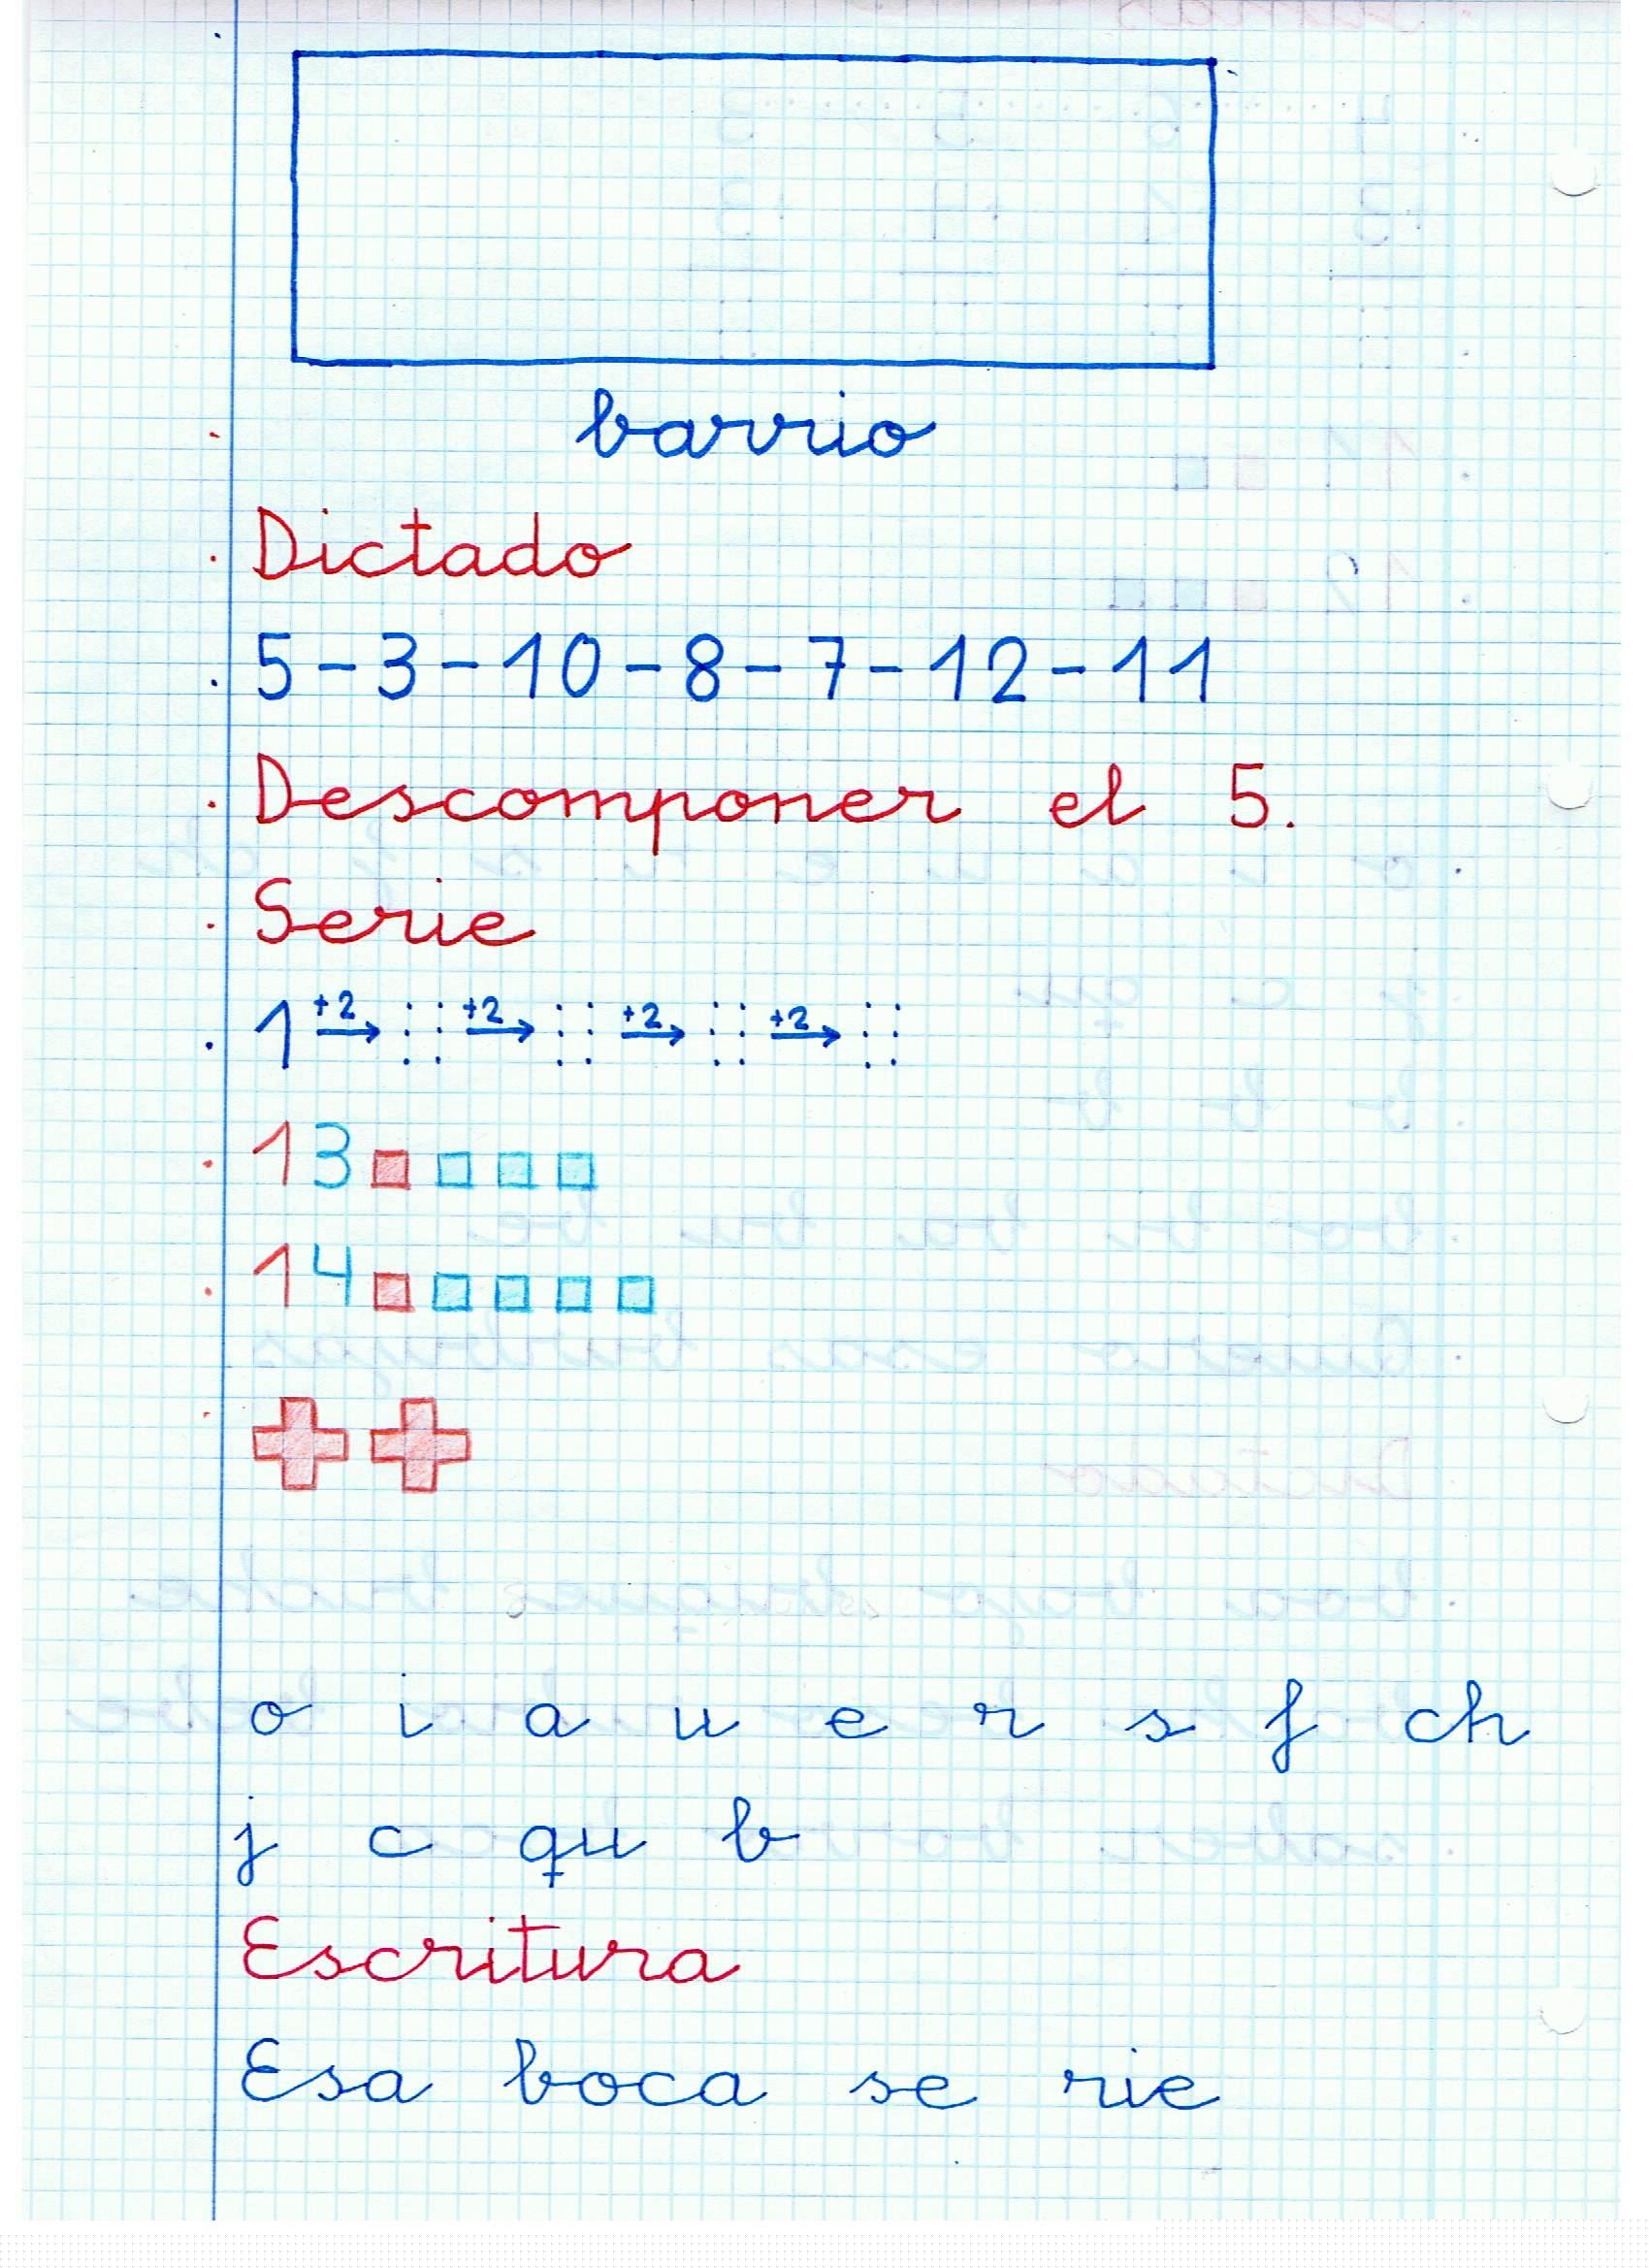 barrio
Dictado
5-3-10-8-7-12-11
Descomponer el 5.
Serie
1 +2 +2 +2 +2
13
14
o i a u e r s f ch
j c qu b
Escritura
Esa boca se rie